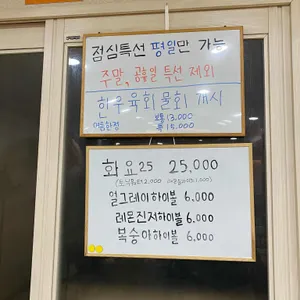 점심특선 평일만 가능
주말, 공휴일 특선 제외
한우육회물회 개시
여름한정 보통 13,000
특 15,000
화요25 25,000
얼그레이하이볼 6,000
레몬진저하이볼 6,000
복숭아하이볼 6,000